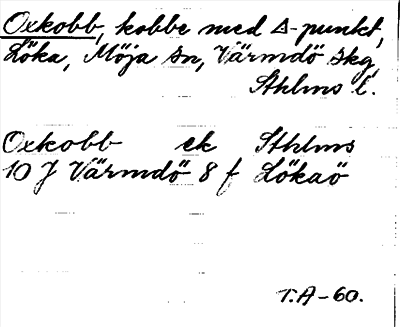 Oxkobb, kobbe med △-punkt,
Löka, Möja sn, Värmdö skg,
Sthlms l.
Oxkobb ek Sthlms
10 J Värmdö 8 f Lökaö
T.A-60.